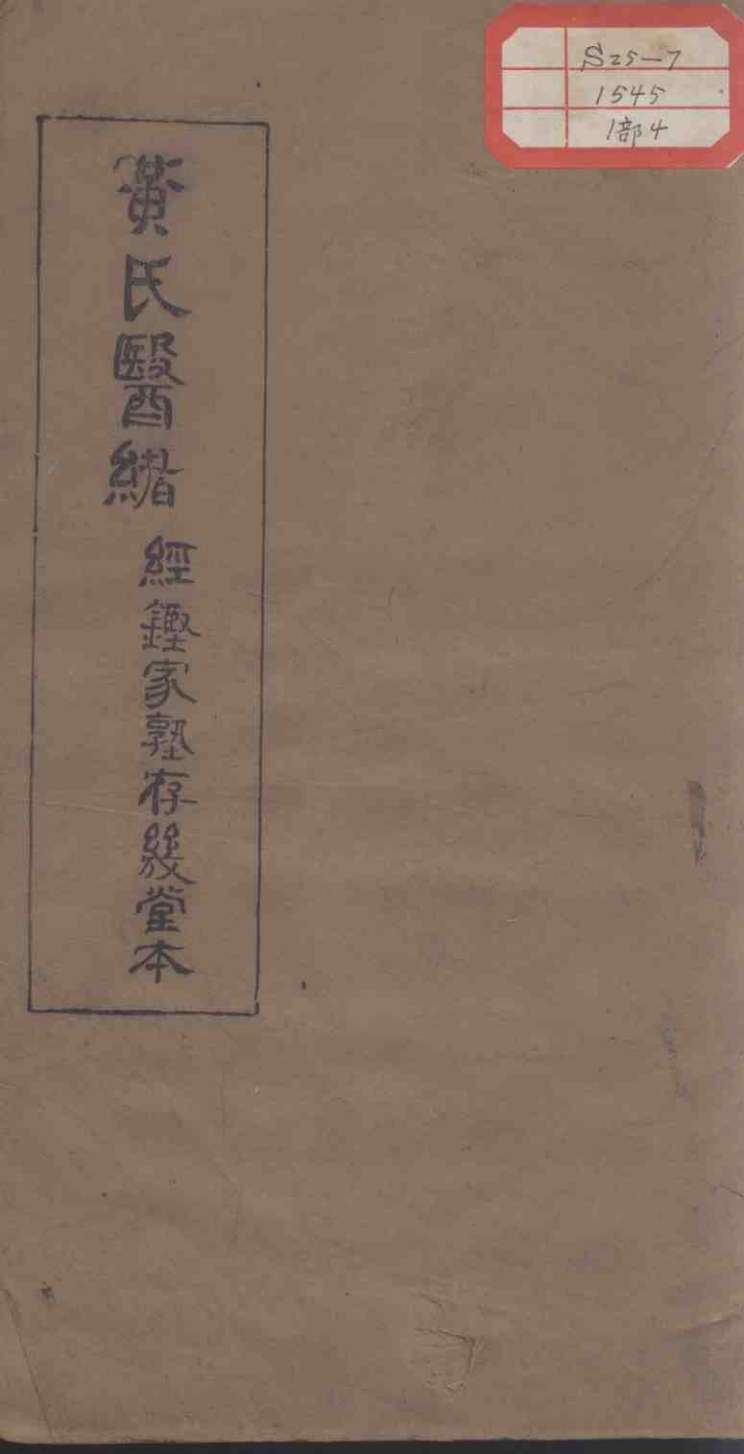 S25-7
1545
1部4
黃氏醫緒
經鏗家塾存幾堂本